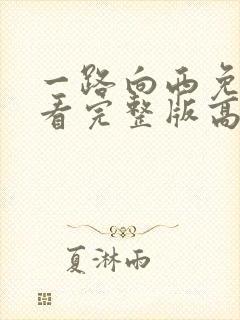 一路向西免
看完整版高
夏淋雨